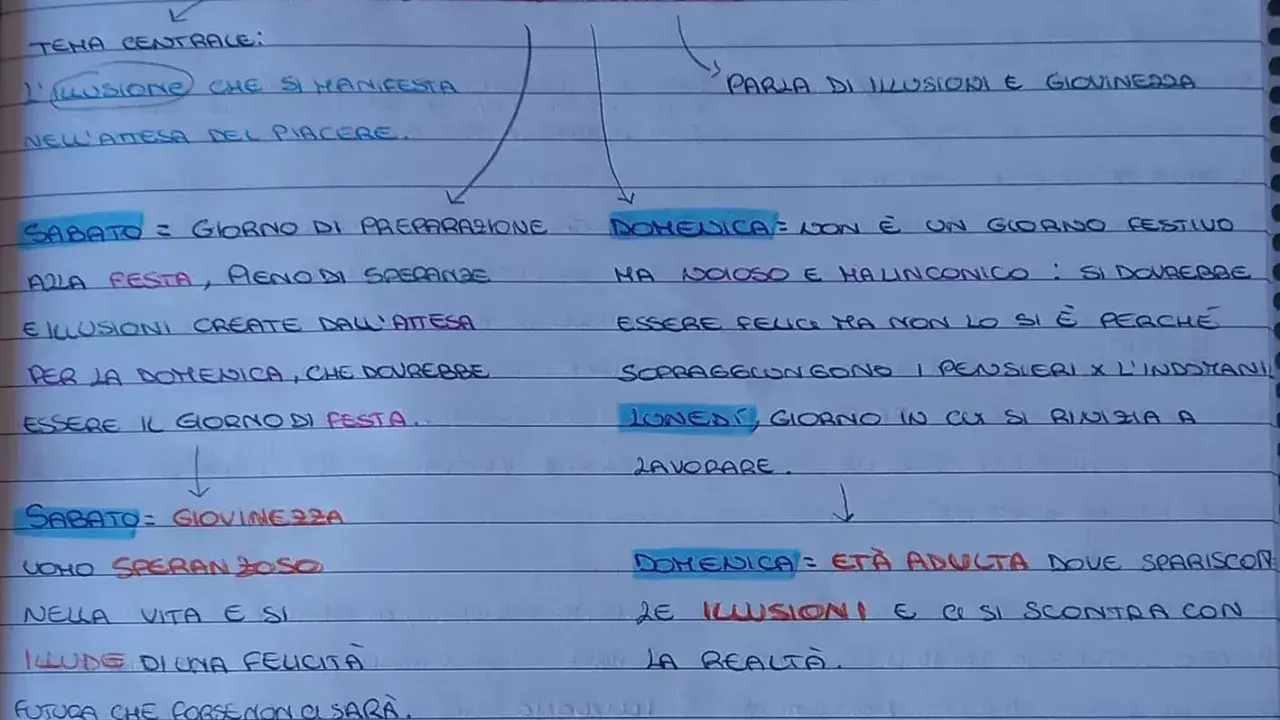 TEMA CENTRALE:
L'ILLUSIONE CHE SI MANIFESTA
NELL'ATTESA DEL PIACERE.
PARLA DI ILLUSIONI E GIOVINEZZA
SABATO = GIORNO DI PREPARAZIONE
ALLA FESTA, PIENO DI SPERANZE
E ILLUSIONI CREATE DALL'ATTESA
PER LA DOMENICA, CHE DOVREBBE
ESSERE IL GIORNO DI FESTA.
SABATO = GIOVINEZZA
UOMO SPERANZOSO
NELLA VITA E SI
ILLUDE DI UNA FELICITÀ
FUTURA CHE FORSE NON CI SARÀ.
DOMENICA = NON È UN GIORNO FESTIVO
MA NOIOSO E MALINCONICO : SI DOVREBBE
ESSERE FELICI MA NON LO SI È PERCHÉ
SOPRAGGIUNGONO I PENSIERI X L'INDOMANI
LUNEDÍ, GIORNO IN CUI SI RINIZIA A
LAVORARE.
DOMENICA = ETÀ ADULTA DOVE SPARISCON
LE ILLUSIONI E CI SI SCONTRA CON
LA REALTÀ.